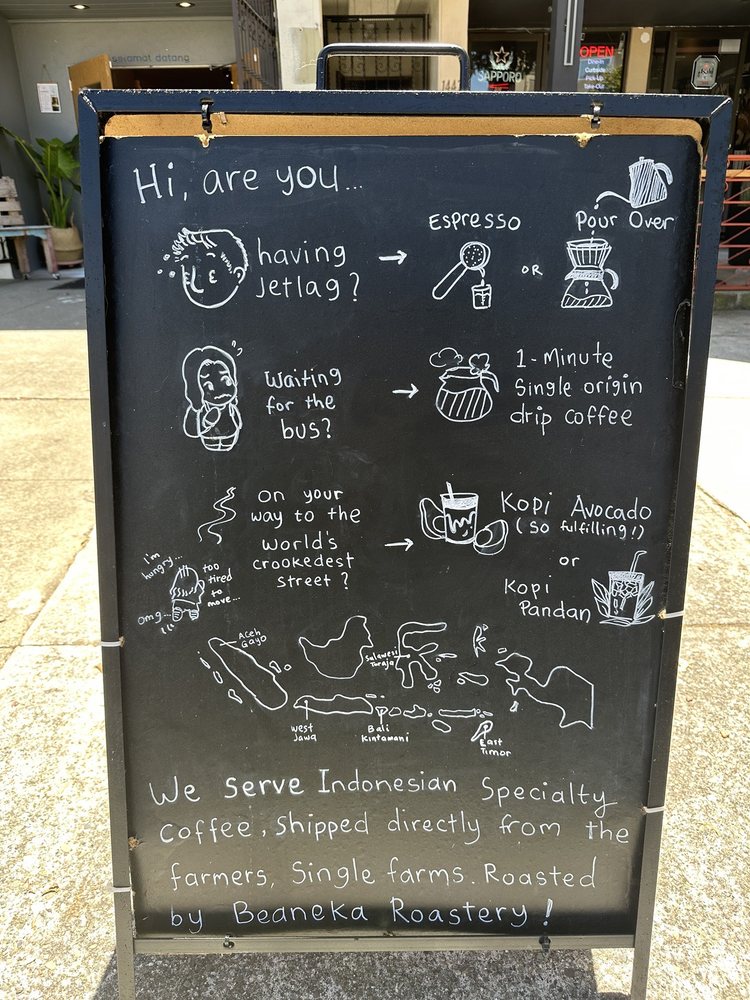 selamat datang
SAPPORO
OPEN
Dine-In
Curbside
Pick-Up
Take-Out
Hi, are you...
having
Jetlag?
Espresso
OR
Pour Over
Waiting
for the
bus?
1-Minute
Single origin
drip coffee
I'm
hungry...
too
tired
to
move...
omg...
on your
way to the
world's
crookedest
street?
Kopi Avocado
(so fulfilling!)
or
Kopi
Pandan
Aceh
Gayo
Sulawesi
Toraja
West
Jawa
Bali
Kintamani
East
Timor
We serve Indonesian Specialty
Coffee, Shipped directly from the
farmers, Single farms. Roasted
by Beaneka Roastery!